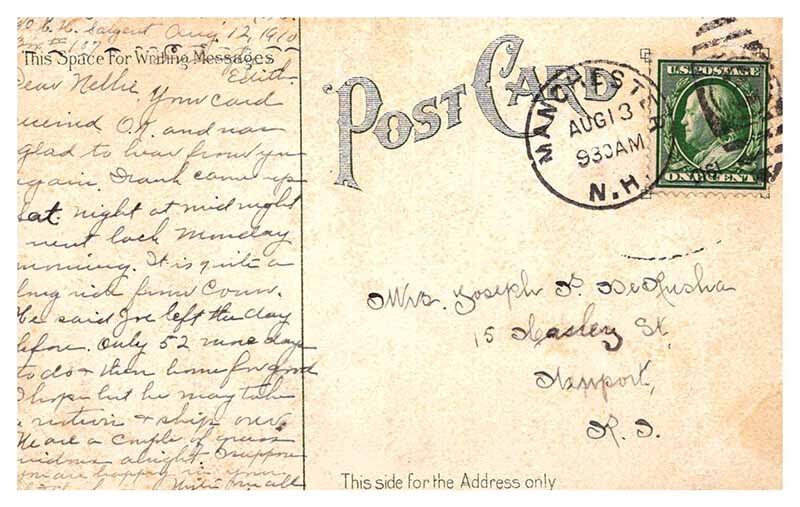 Sargent Aug 12, 1910
This Space for Writing Messages
Edith.
Dear Nellie. Your card
received O.K. and was
glad to hear from you
again. Frank came up
Sat. night at midnight
went back Monday
morning. It is quite a
long ride from Conn.
He said Joe left the day
before. Only 52 more days
to do & then home for good
I hope but he may take
a notion & ship over.
We are a couple of grass
widows alright I suppose
you are happy in your
Write
all
POST CARD
MANCHESTER
AUG 13
930AM
N.H.
U.S. POSTAGE
ONE CENT
Mrs. Joseph
15 St.
Newport,
R. I.
This side for the Address only